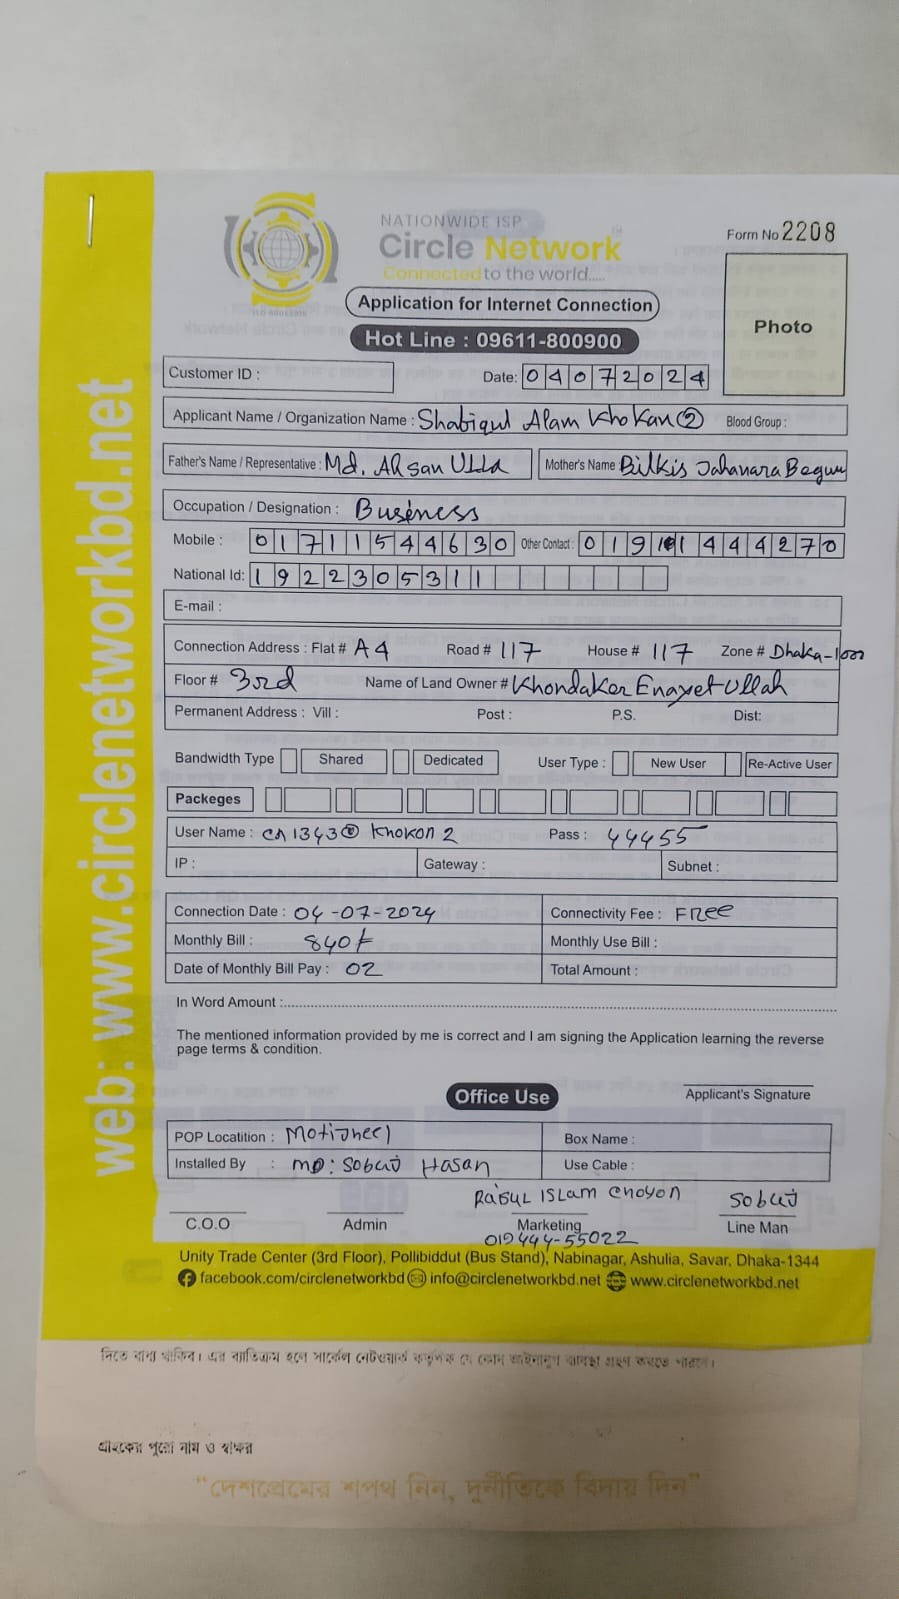 web: www.circlenetworkbd.net
NATIONWIDE ISP
Circle Network
Connected to the world.....
Form No 2208
Application for Internet Connection
Hot Line : 09611-800900
Photo
Customer ID :
Date: 04072024
Applicant Name / Organization Name : Shabiqul Alam Khokan ② Blood Group :
Father's Name / Representative : Md. AhSan Ulla Mother's Name Bilkis Jahanara Begum
Occupation / Designation : Business
Mobile : 01711544630 Other Contact : 01911444270
National Id: 1922305311
E-mail :
Connection Address : Flat # A4 Road # 117 House # 117 Zone # Dhaka-1000
Floor # 3rd Name of Land Owner # Khondaker Enayet Ullah
Permanent Address : Vill : Post : P.S. Dist:
Bandwidth Type Shared Dedicated User Type : New User Re-Active User
Packeges
User Name : cn1343@Khokon2 Pass : 44455
IP : Gateway : Subnet :
Connection Date : 04-07-2024 Connectivity Fee : FRee
Monthly Bill : 840 Monthly Use Bill :
Date of Monthly Bill Pay : 02 Total Amount :
In Word Amount :
The mentioned information provided by me is correct and I am signing the Application learning the reverse
page terms & condition.
Applicant's Signature
Office Use
POP Locatition : Motijheel Box Name :
Installed By : MD: Sobuj Hasan Use Cable :
Raisul ISLam choyon Sobuj
C.O.O Admin Marketing Line Man
019444-55022
Unity Trade Center (3rd Floor), Pollibiddut (Bus Stand), Nabinagar, Ashulia, Savar, Dhaka-1344
facebook.com/circlenetworkbd info@circlenetworkbd.net www.circlenetworkbd.net
দিতে বাধ্য থাকিব। এর ব্যতিক্রম হলে সার্কেল নেটওয়ার্ক কর্তৃপক্ষ যে কোন আইনানুগ ব্যবস্থা গ্রহণ করতে পারবে।
গ্রাহকের পুরো নাম ও স্বাক্ষর
“দেশপ্রেমের শপথ নিন, দুর্নীতিকে বিদায় দিন”